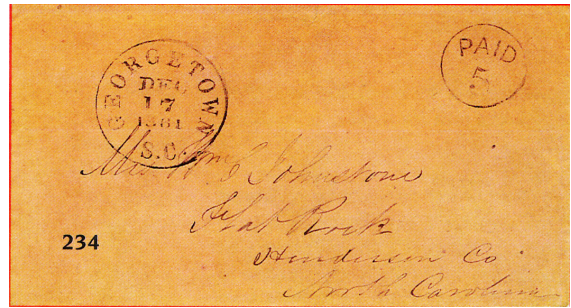 GEORGETOWN
DEC
17
1861
S.C.
PAID
5
Mrs Wm C Johnstone
Flat Rock
Henderson Co
North Carolina
234